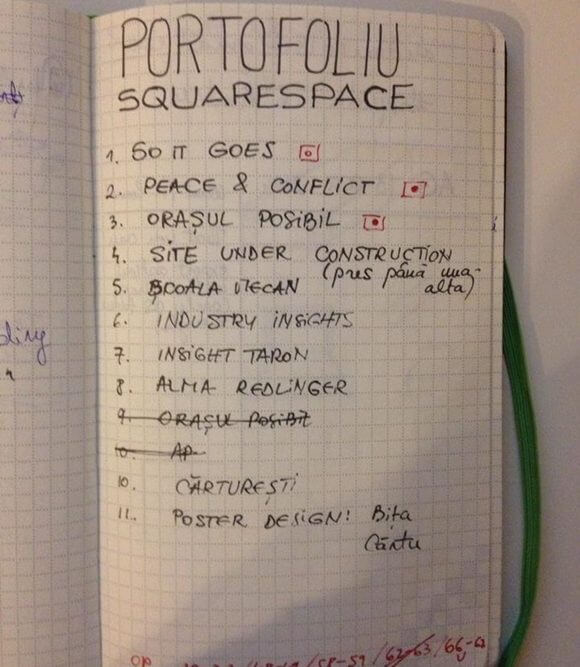 PORTOFOLIU
SQUARESPACE
1. SO IT GOES
2. PEACE & CONFLICT
3. ORAȘUL POSIBIL
4. SITE UNDER CONSTRUCTION
(pres până una-alta)
5. ȘCOALA ITECAN
6. INDUSTRY INSIGHTS
7. INSIGHT TARON
8. ALMA REDLINGER
9. ORAȘUL POSIBIL
10. AP
10. CĂRTUREȘTI
11. POSTER DESIGN! Bița
Cărtu